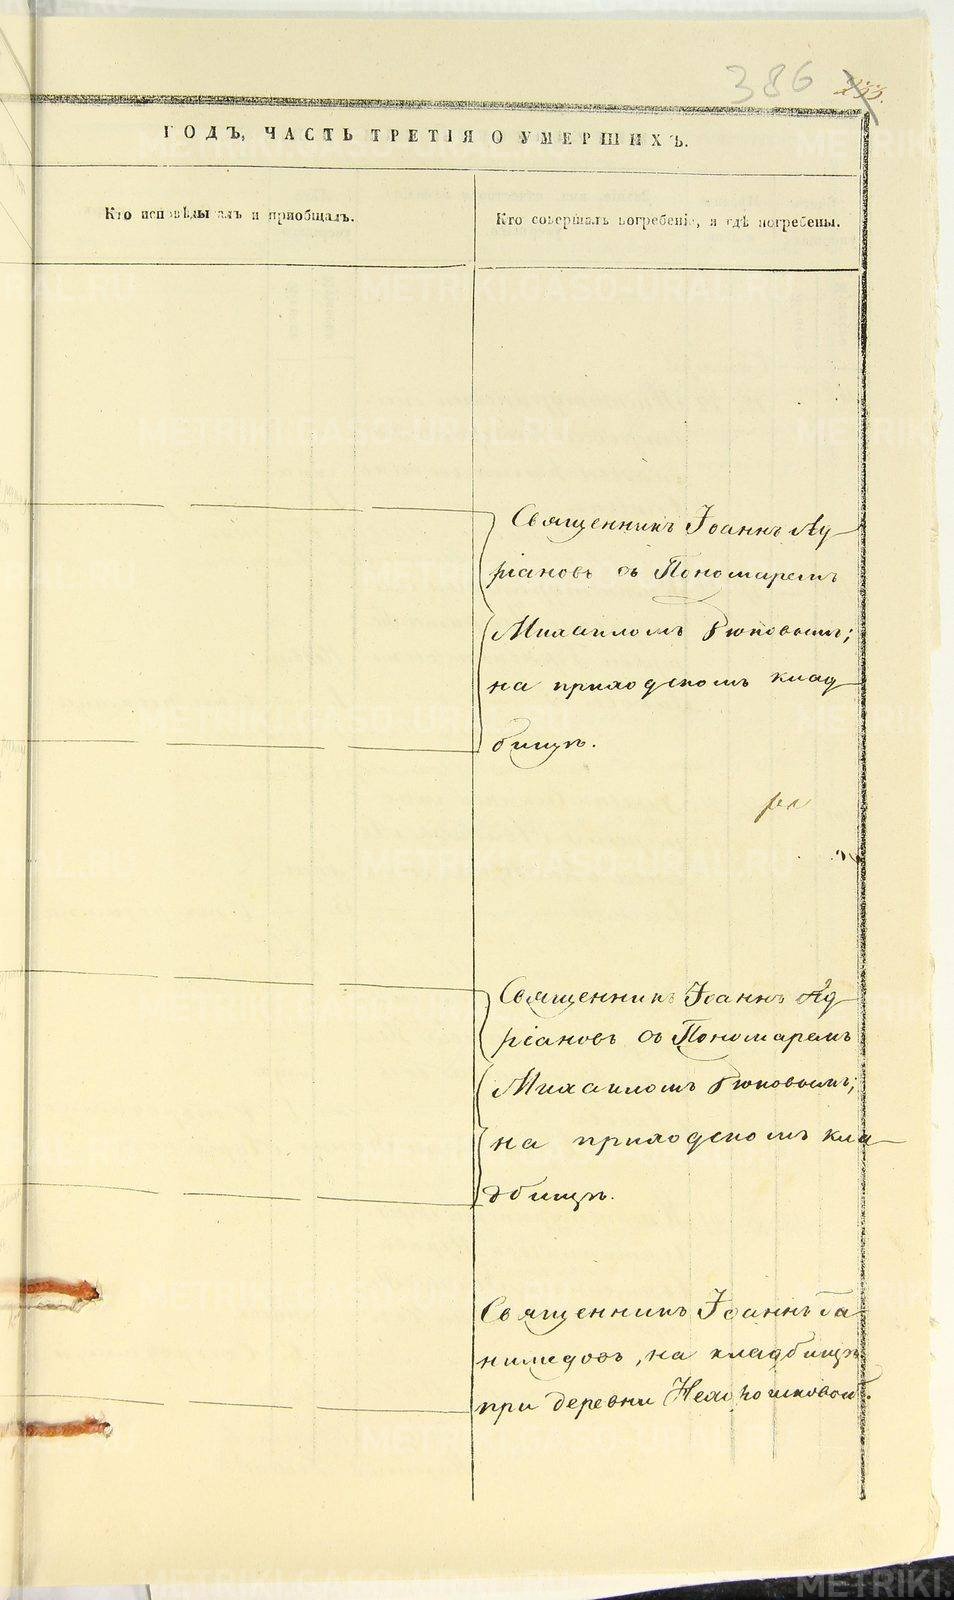 386
ГОДЪ, ЧАСТЬ ТРЕТІЯ О УМЕРШИХЪ.
Кто исповѣдывалъ и пріобщалъ.
Кто совершалъ погребеніе, и гдѣ погребены.
Священникъ Іоаннъ Ад
ріановъ съ Пономаремъ
Михаиломъ
на приходскомъ клад
бищѣ.
Священникъ Іоаннъ Ад
ріановъ съ Пономаремъ
Михаиломъ
на приходскомъ кла
дбищѣ.
Священникъ Іоаннъ Га
нимедовъ, на кладбищѣ
при деревни
METRIKI.GASO-URAL.RU